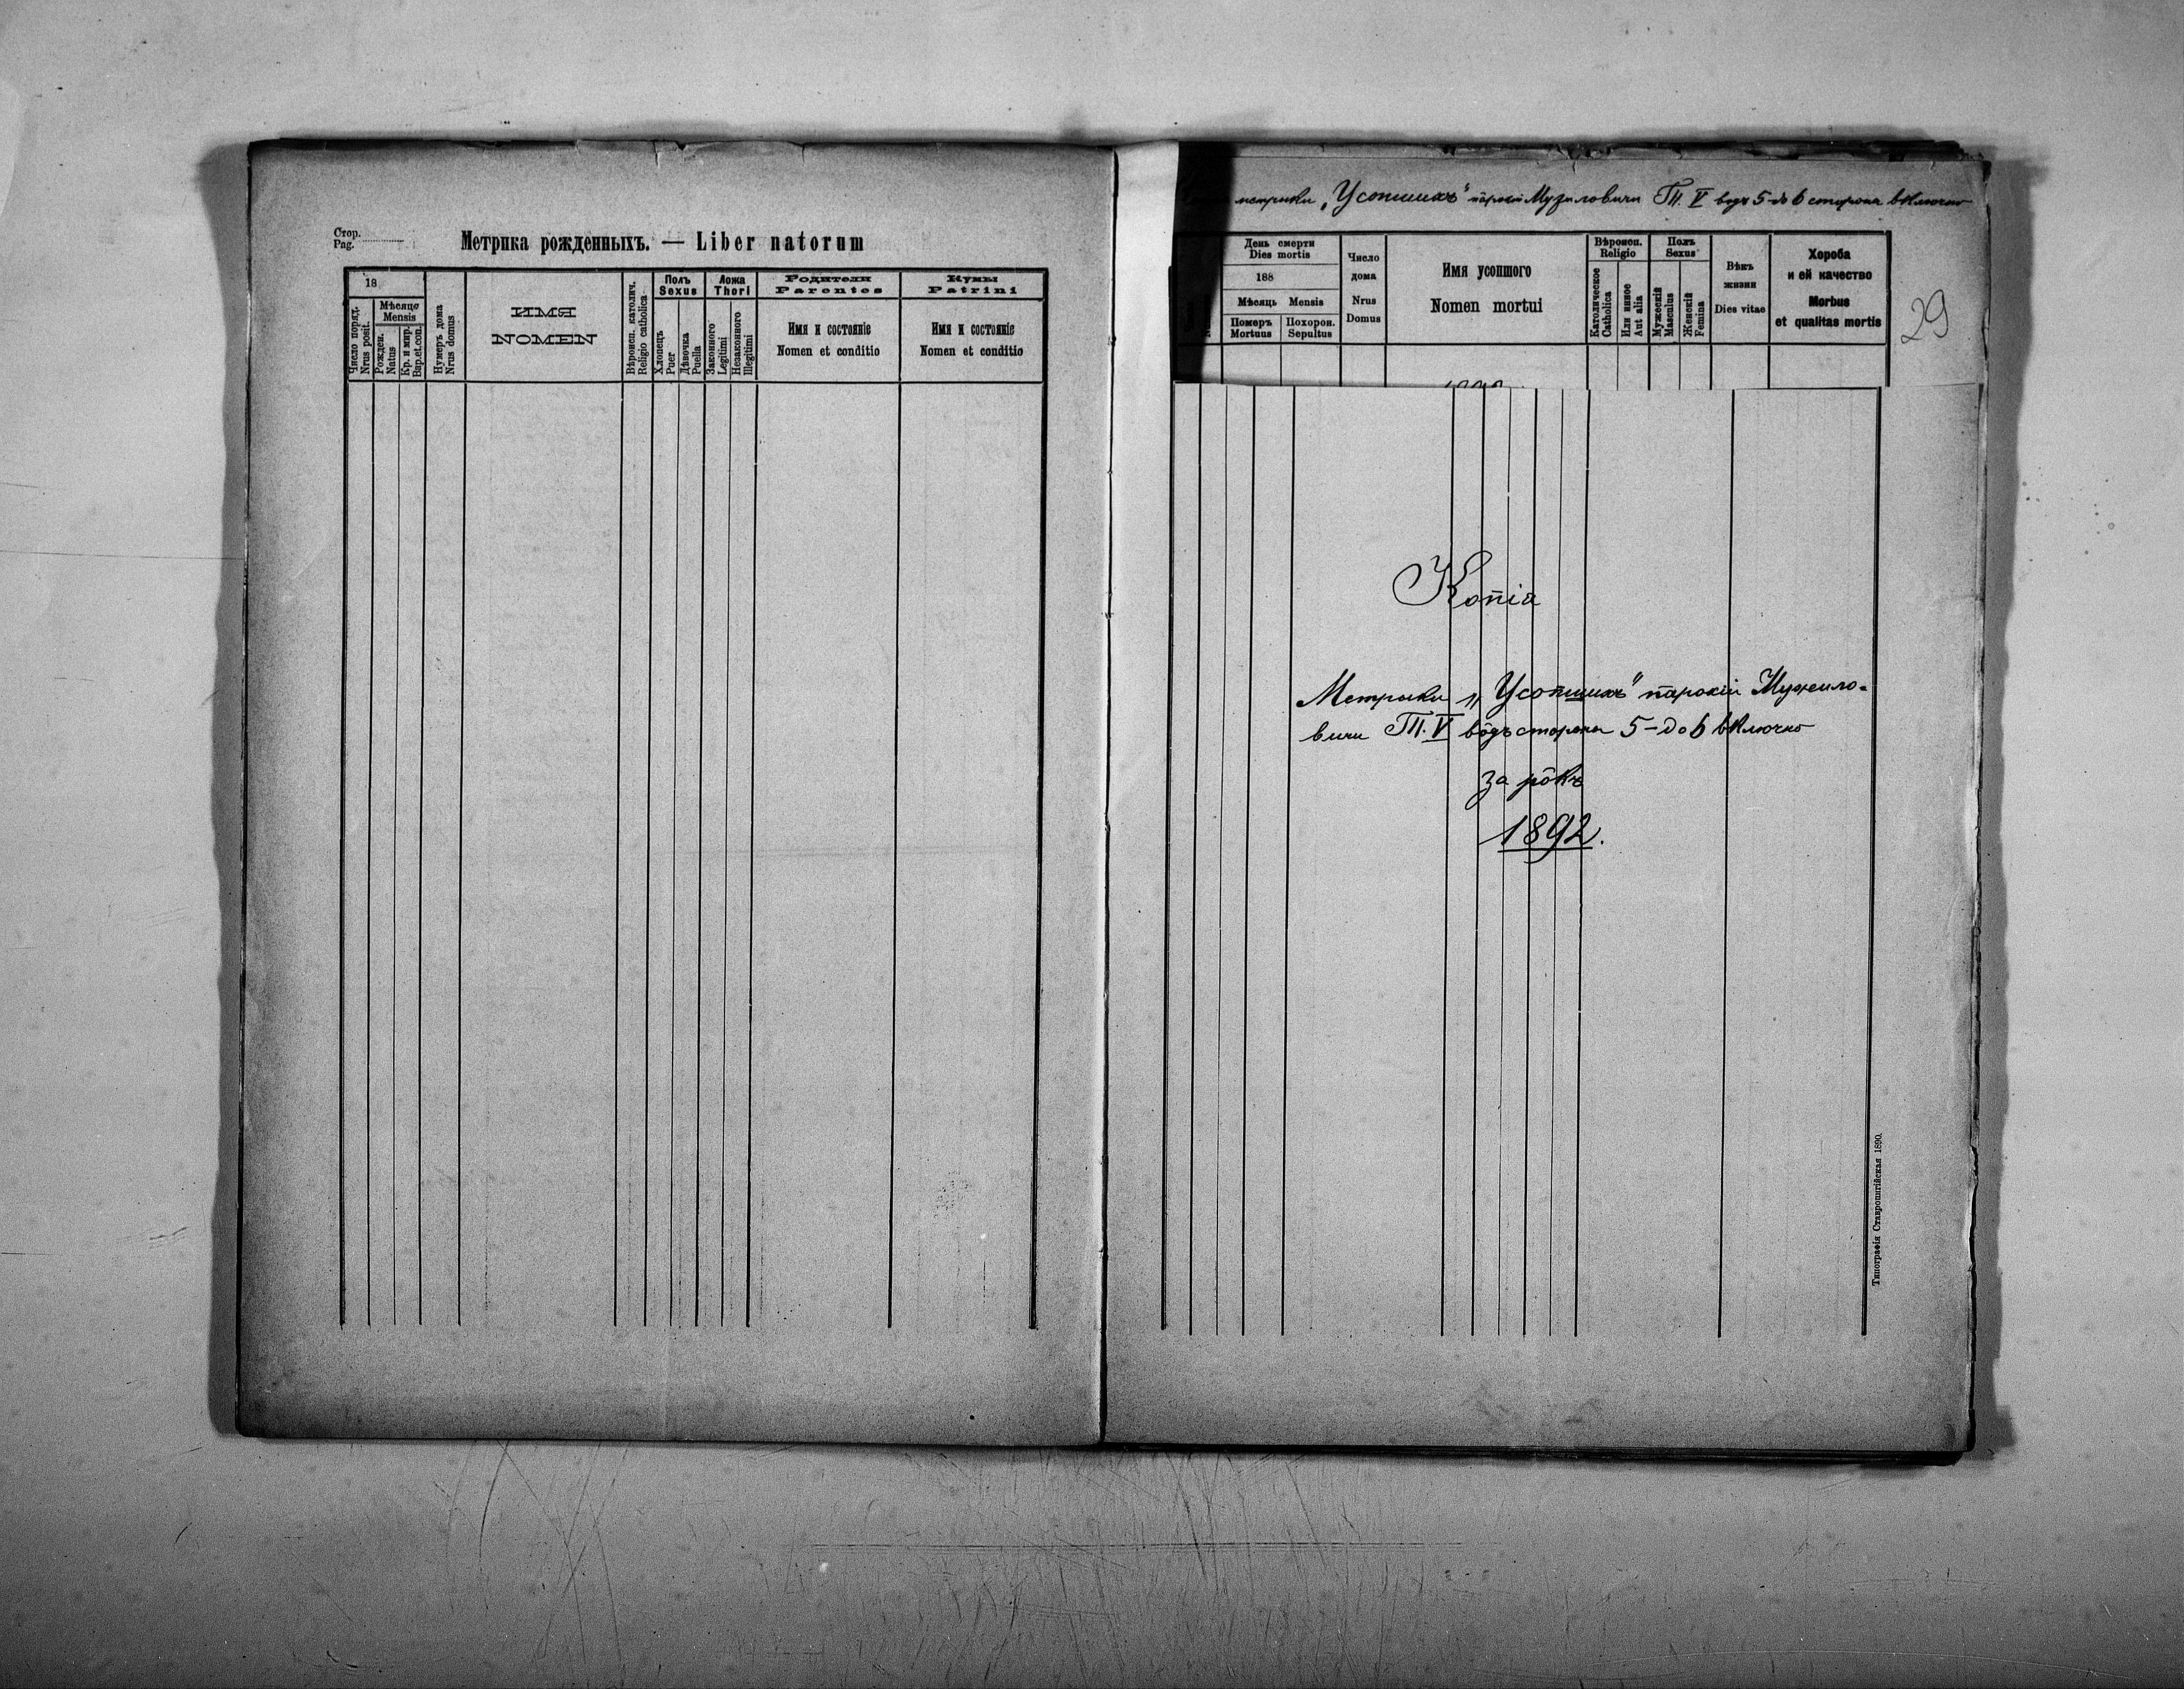 Стор.
Pag.
Метрика рожденныхъ. — Liber natorum
18
Мѣсяцъ
Mensis
Число поряд.
Nrus posit.
Рожден.
Natus
Кр. и мир.
Bap. et. con.
Нумеръ дома
Nrus domus
ИМЯ
NOMEN
Вѣроисп. католич.
Religio catholica
Полъ
Sexus
Хлопецъ
Puer
Дѣвочка
Puella
Ложа
Thori
Законного
Legitimi
Незаконного
Illegitimi
Родители
Parentes
Имя и состоянiе
Nomen et conditio
Кумы
Patrini
Имя и состоянiе
Nomen et conditio
метрики „Усопшихъ" парохіи Мужиловичи Т. V водъ 5-до 6 сторона включно
29
День смерти
Dies mortis
188
Мѣсяць Mensis
Померъ
Mortuus
Похорон.
Sepultus
Число
дома
Nrus
Domus
Имя усопшого
Nomen mortui
Вѣроисп.
Religio
Католическое
Catholica
Или инное
Aut alia
Полъ
Sexus
Мужескій
Masculus
Женскій
Femina
Вѣкъ
жизни
Dies vitae
Хороба
и ей качество
Morbus
et qualitas mortis
Копіа
Метрики „Усопшихъ" парохіи Мужило-
вичи Т. V вôдъ сторона 5-до 6 включно
за рôкъ
1892.
Типографія Ставропигійская 1890.